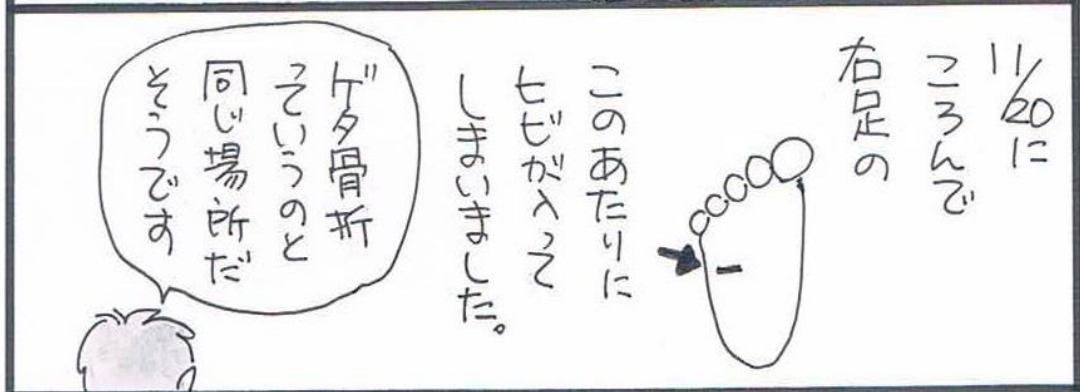 11/20に
ころんで
右足の
このあたりに
ヒビが入って
しまいました。
ゲタ骨折
っていうのと
同じ場所だ
そうです